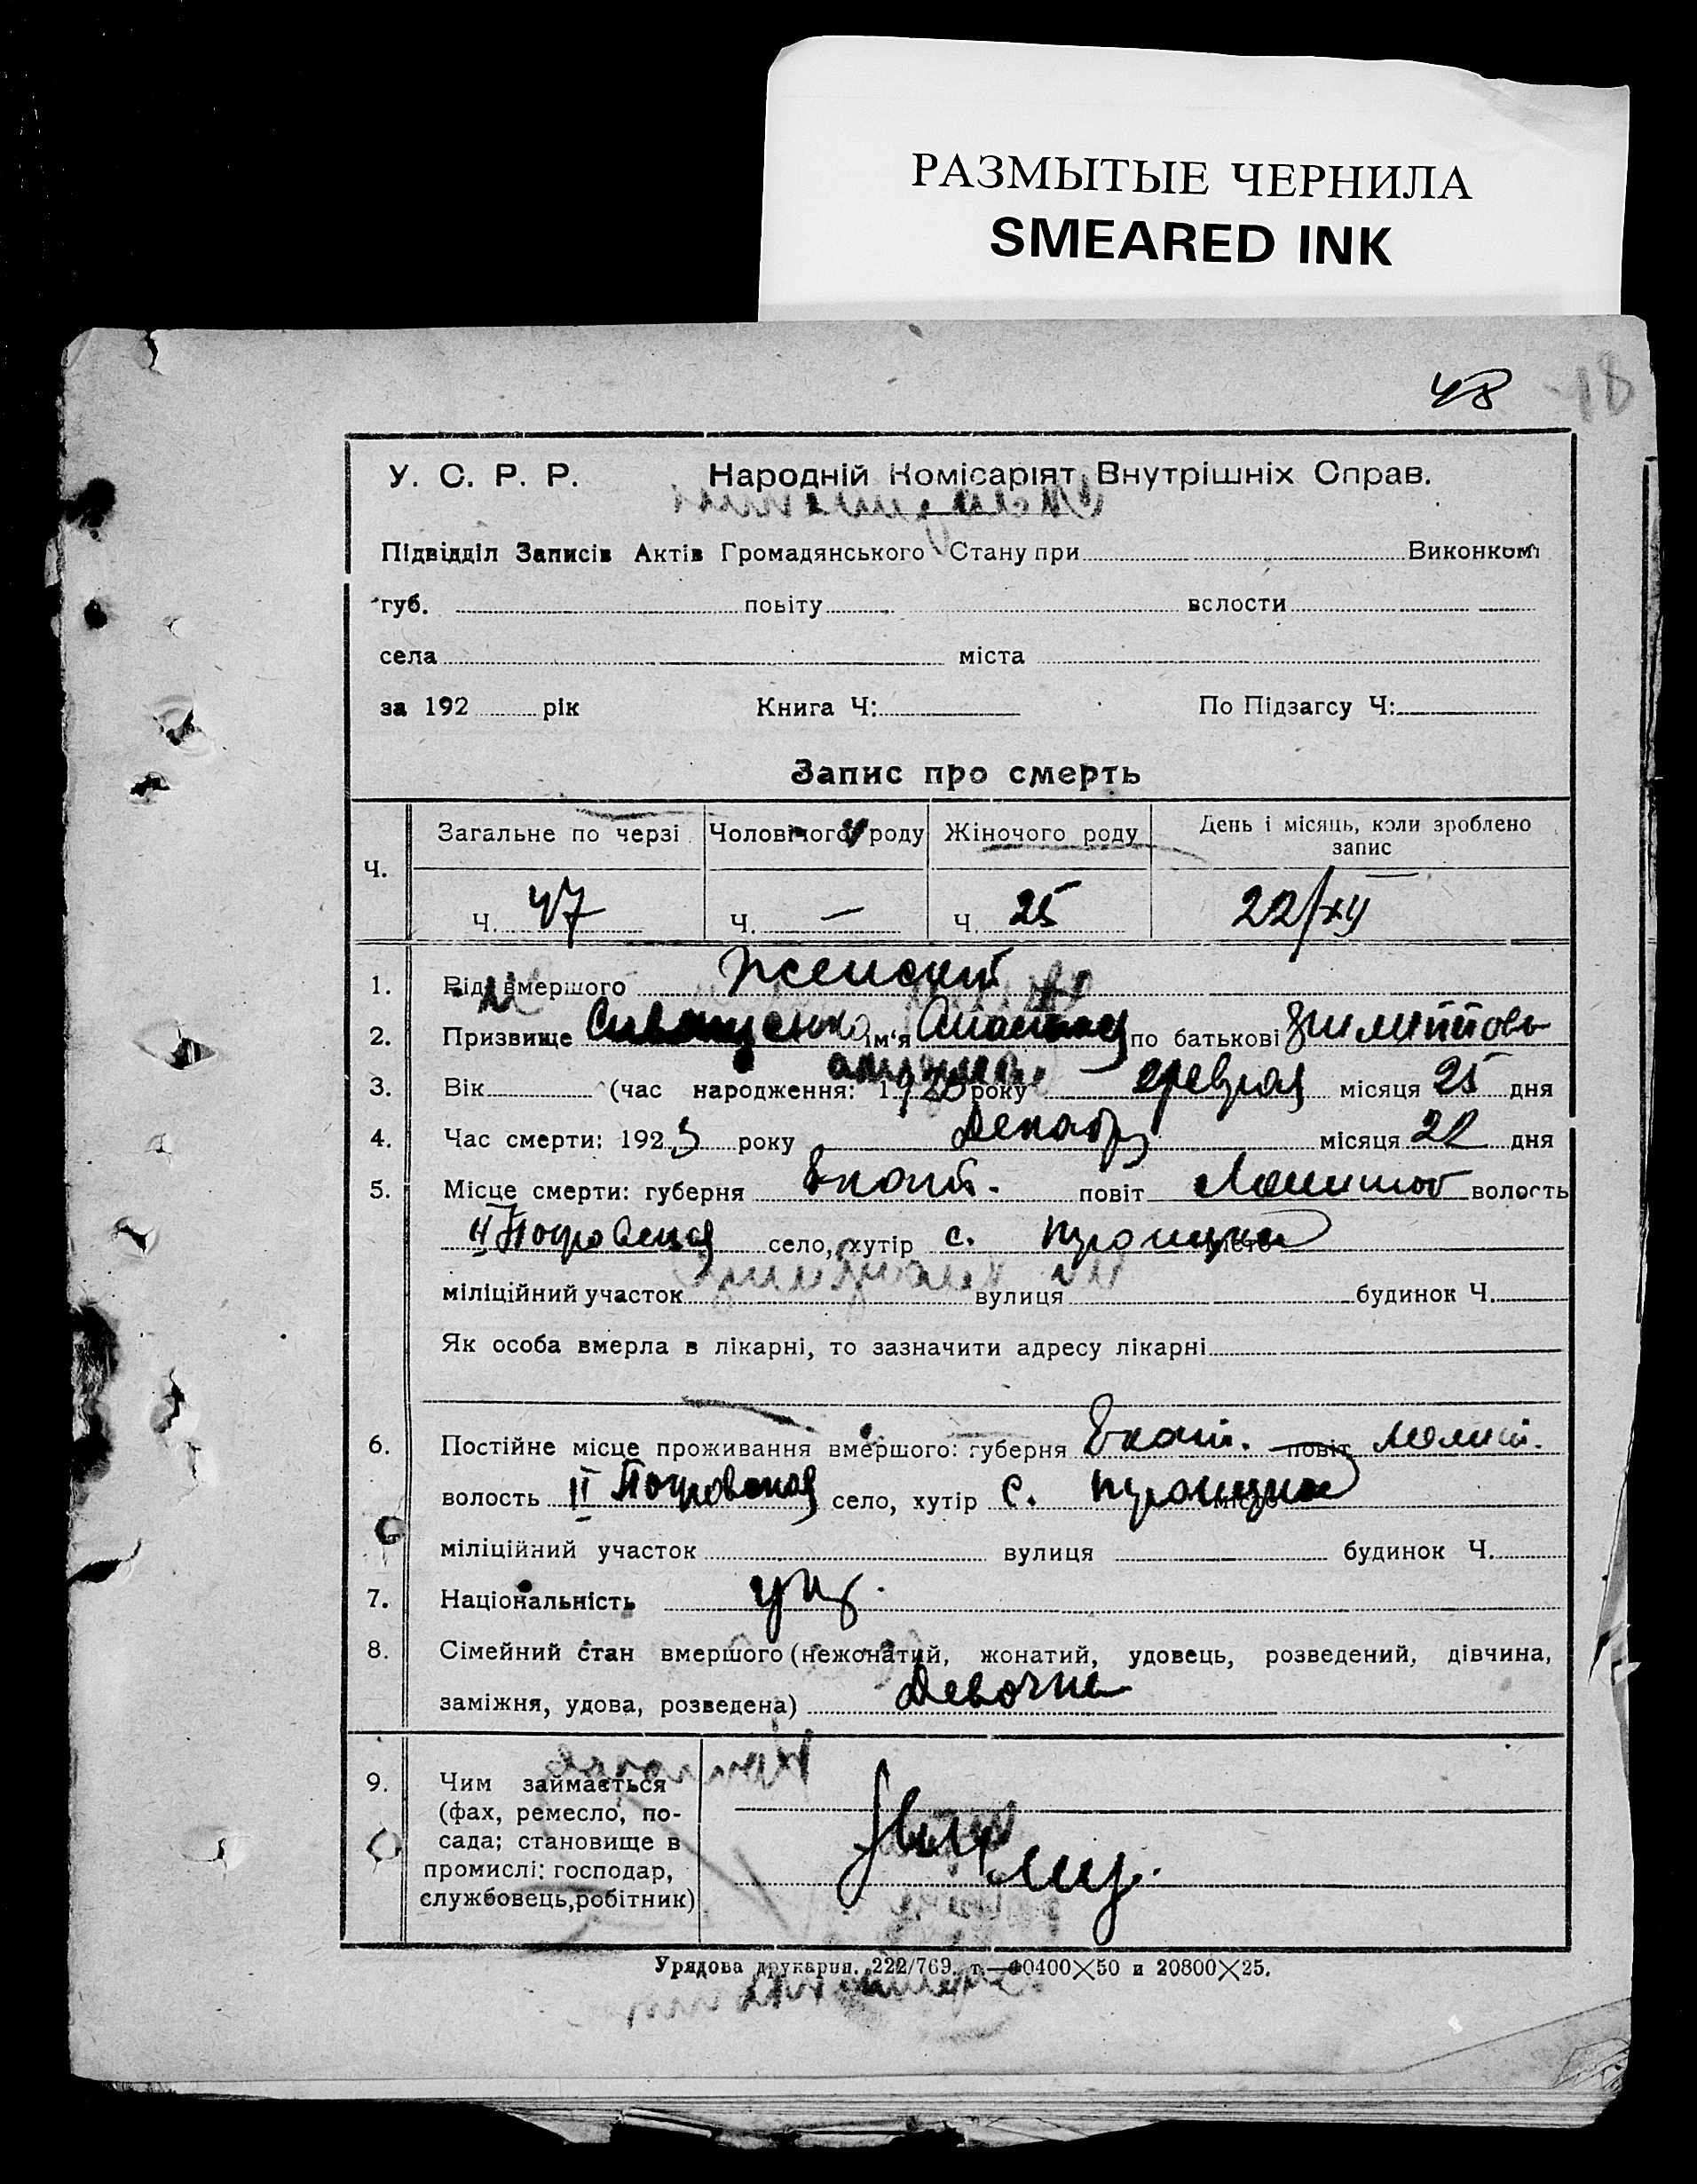 РАЗМЫТЫЕ ЧЕРНИЛА
SMEARED INK
48 18
У. С. Р. Р. Народній Комісаріят Внутрішніх Справ.
Підвідділ Записів Актів Громадянського Стану при Виконком
губ. повіту волости
села міста
за 192 рік Книга Ч: По Підзагсу Ч:
Запис про смерть
Ч. Загальне по черзі Чоловічого роду Жіночого роду День і місяць, коли зроблено
запис
Ч. 47 Ч. — Ч. 25 22/XII
1. Рід вмершого Женский
2. Призвище ім'я Анастасия по батькові
3. Вік (час народження: 1923 року февраля місяця 25 дня
4. Час смерти: 1923 року Декабр місяця 22 дня
5. Місце смерти: губерня Екат. повіт волость
II Покровская село, хутір с. місто
міліційний участок вулиця будинок Ч.
Як особа вмерла в лікарні, то зазначити адресу лікарні
6. Постійне місце проживання вмершого: губерня Екат. повіт
волость II Покровская село, хутір с. місто
міліційний участок вулиця будинок Ч.
7. Національність укр.
8. Сімейний стан вмершого (нежонатий, жонатий, удовець, розведений, дівчина,
заміжня, удова, розведена) Девочка
9. Чим займається
(фах, ремесло, по-
сада; становище в
промислі: господар,
службовець, робітник)
Урядова друкарня. 222/769 т.—60400×50 и 20800×25.